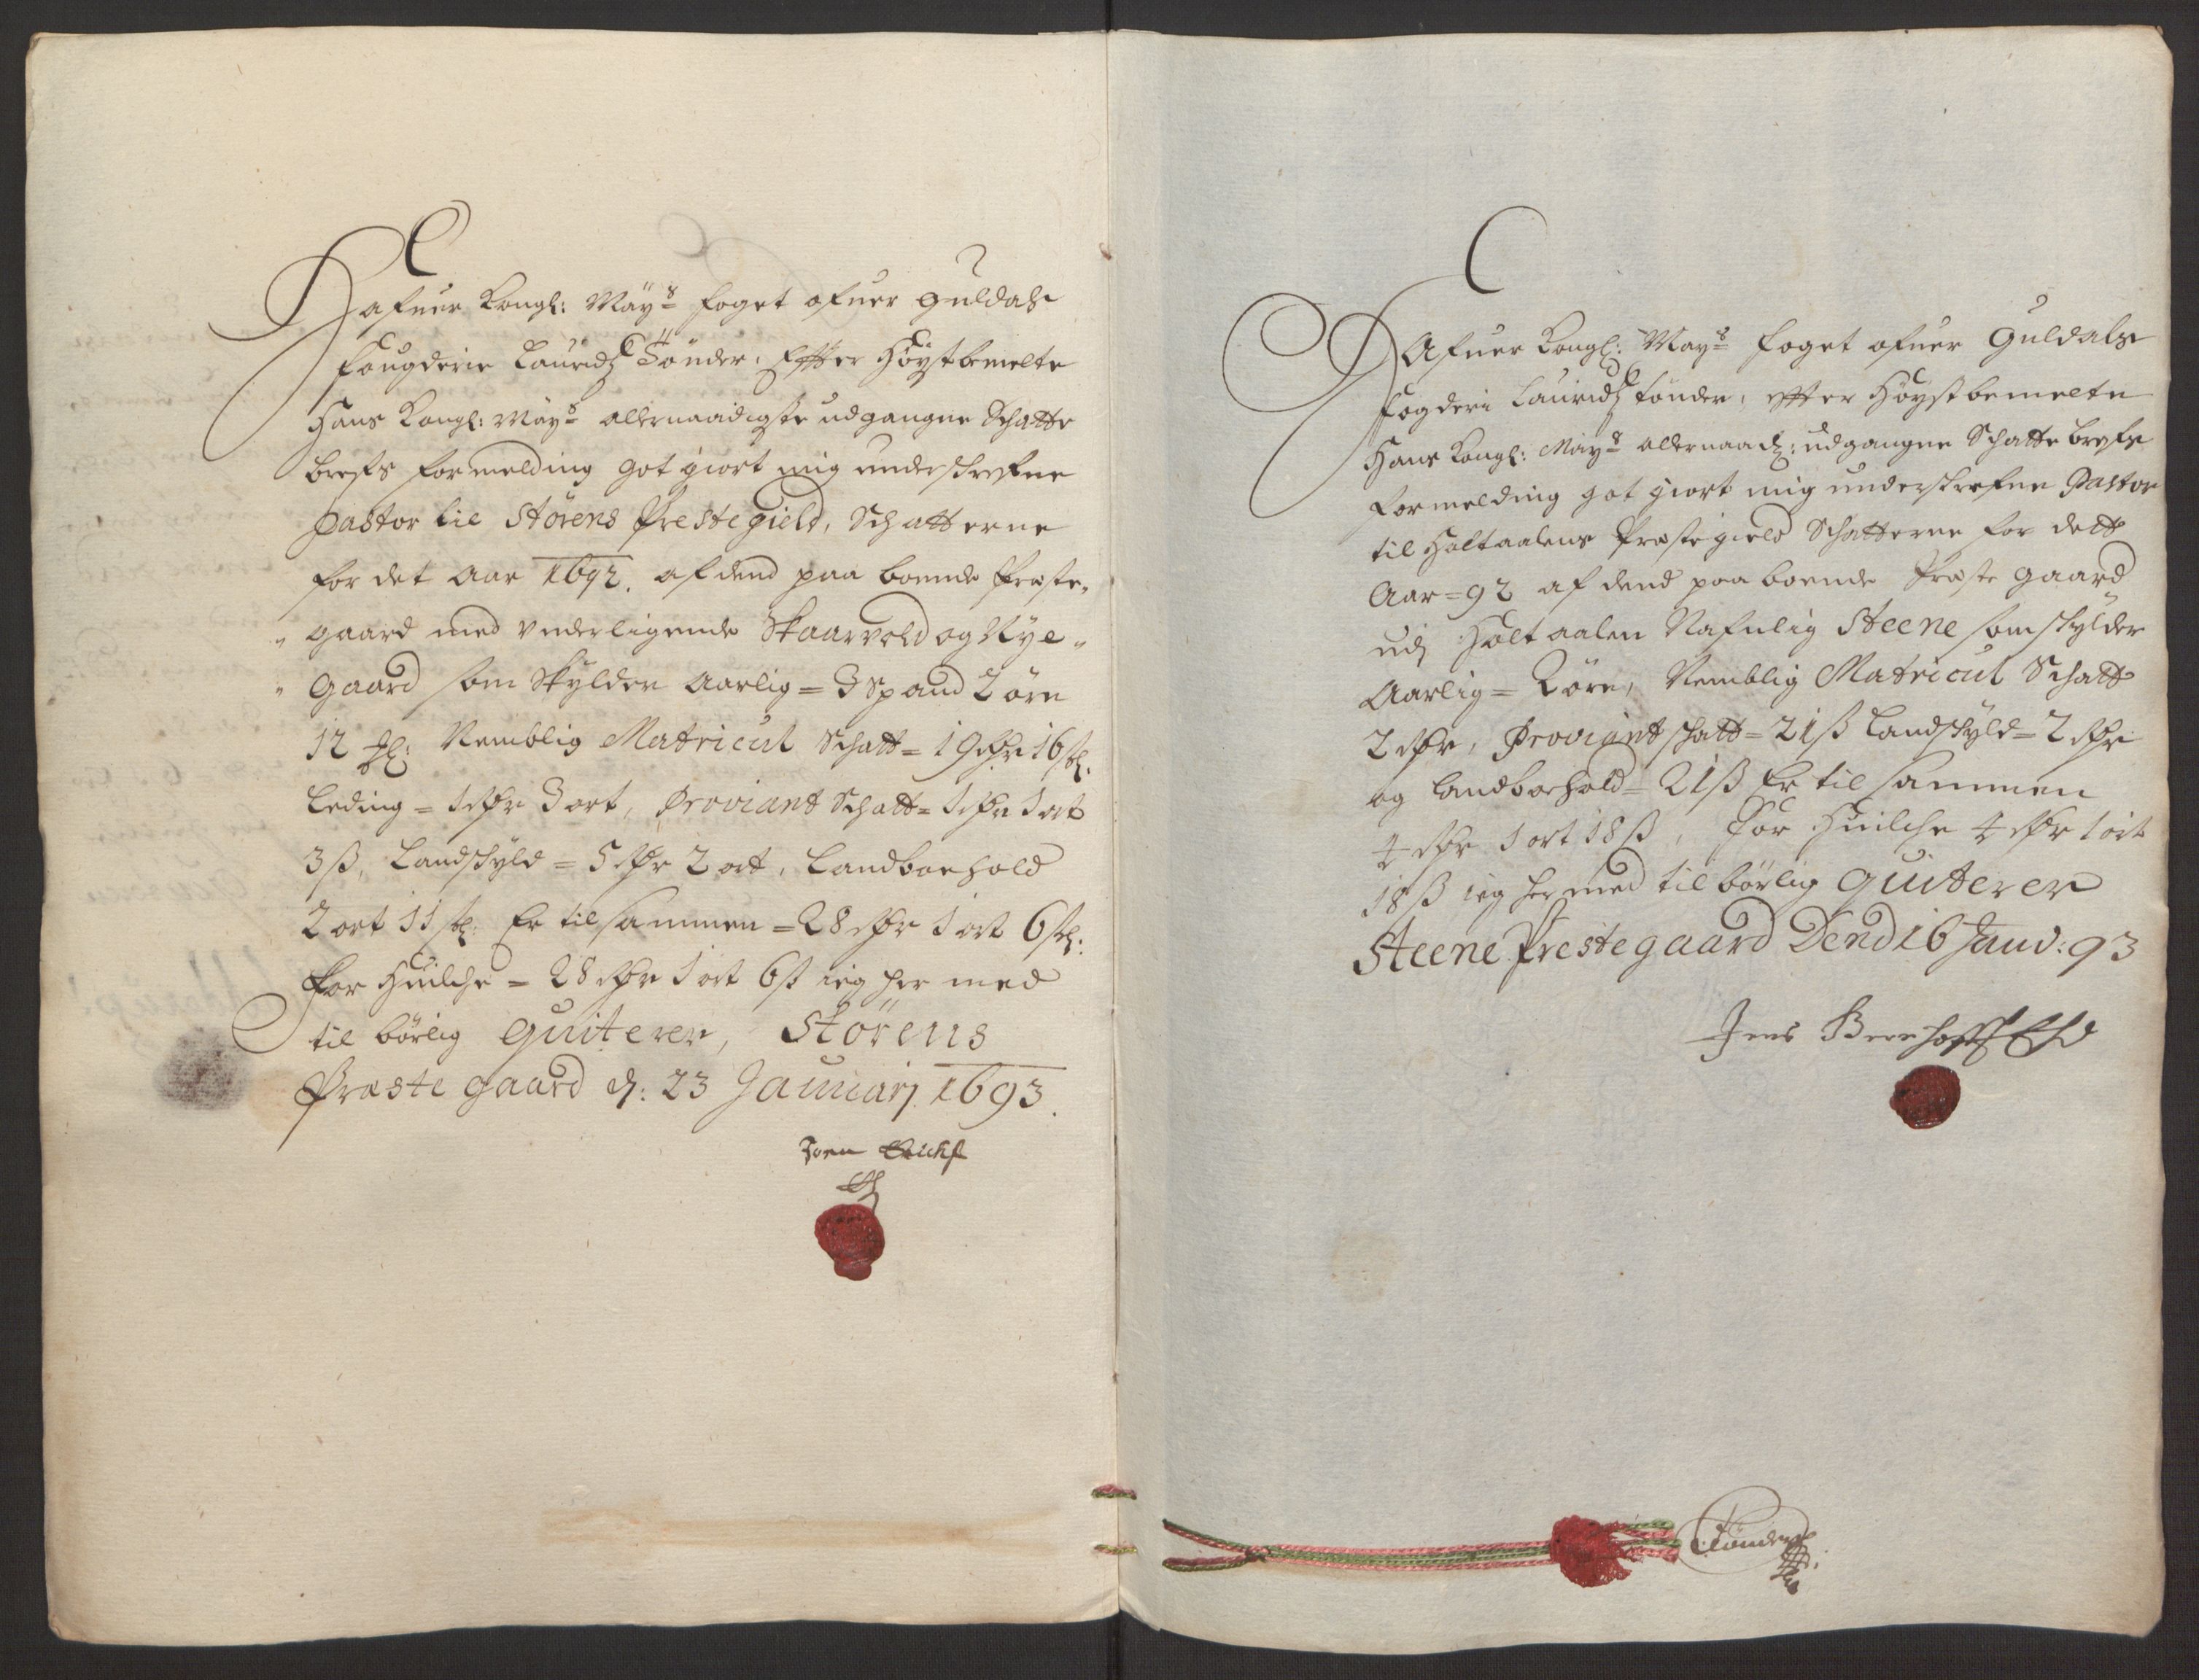 Hafuer Kongl: Mays foget ofuer Guldals
fougderie Lauridtz Tönder, Effter Höystbemelte
Hans Kongl: Mays allernaadigste udgangne Schatte
brefs formelding got giort mig underschrefne
Pastor til Störens Prestegield, Schatterne
for det Aar 1692. af dend paa boende Præste-
gaard med underligende Skaarvold og Nye-
Gaard som Skylder Aarlig = 3 Spand 2 öre
12 Ml: Nemblig Matricul Schatt = 19 rdr 16 sk:
Leding = 1 rdr 3 ort, Proviant Schatt = 1 rdr 1 ort
3 ß, Landschyld = 5 rdr 2 ort, Landboehold
2 ort 11 sk: Er tilsammen = 28 rdr 1 ort 6 sk:
For Huilche = 28 rdr 1 ort 6 ß ieg her med
til börlig Quiterer, Störens
Præste gaard d: 23 Januarj 1693.
Hafuer Kongl: Mays foget ofuer Guldals
fogderi Lauridtz Tönder, effter Höystbemelte
Hans Kongl: Mays allernaad: udgangne Schatte brefs
formelding got giort mig underschrefne Pastor
til Holtaalens Præstegield Schatterne for dett
Aar = 92 af dend paa boende Præste gaard
udj Holtaalen Nafnlig Steene som schylder
Aarlig = 2 öre, Nemblig Matricul Schatt
2 rdr, Proviant schatt = 21 ß Landschyld = 2 rdr
og Landboehold = 21 ß Er til sammen
4 rdr 1 ort 18 ß, For Huilche 4 rdr 1 ort
18 ß ieg her med til börlig Quiterer
Steene Prestegaard Dend 16 Janv: 93
Jens
Tönder